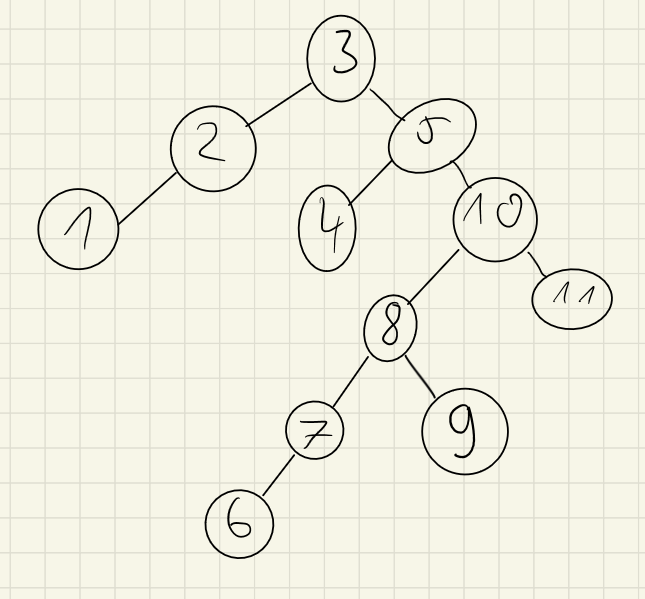 3
2 5
1 4 10
11
8
7 9
6